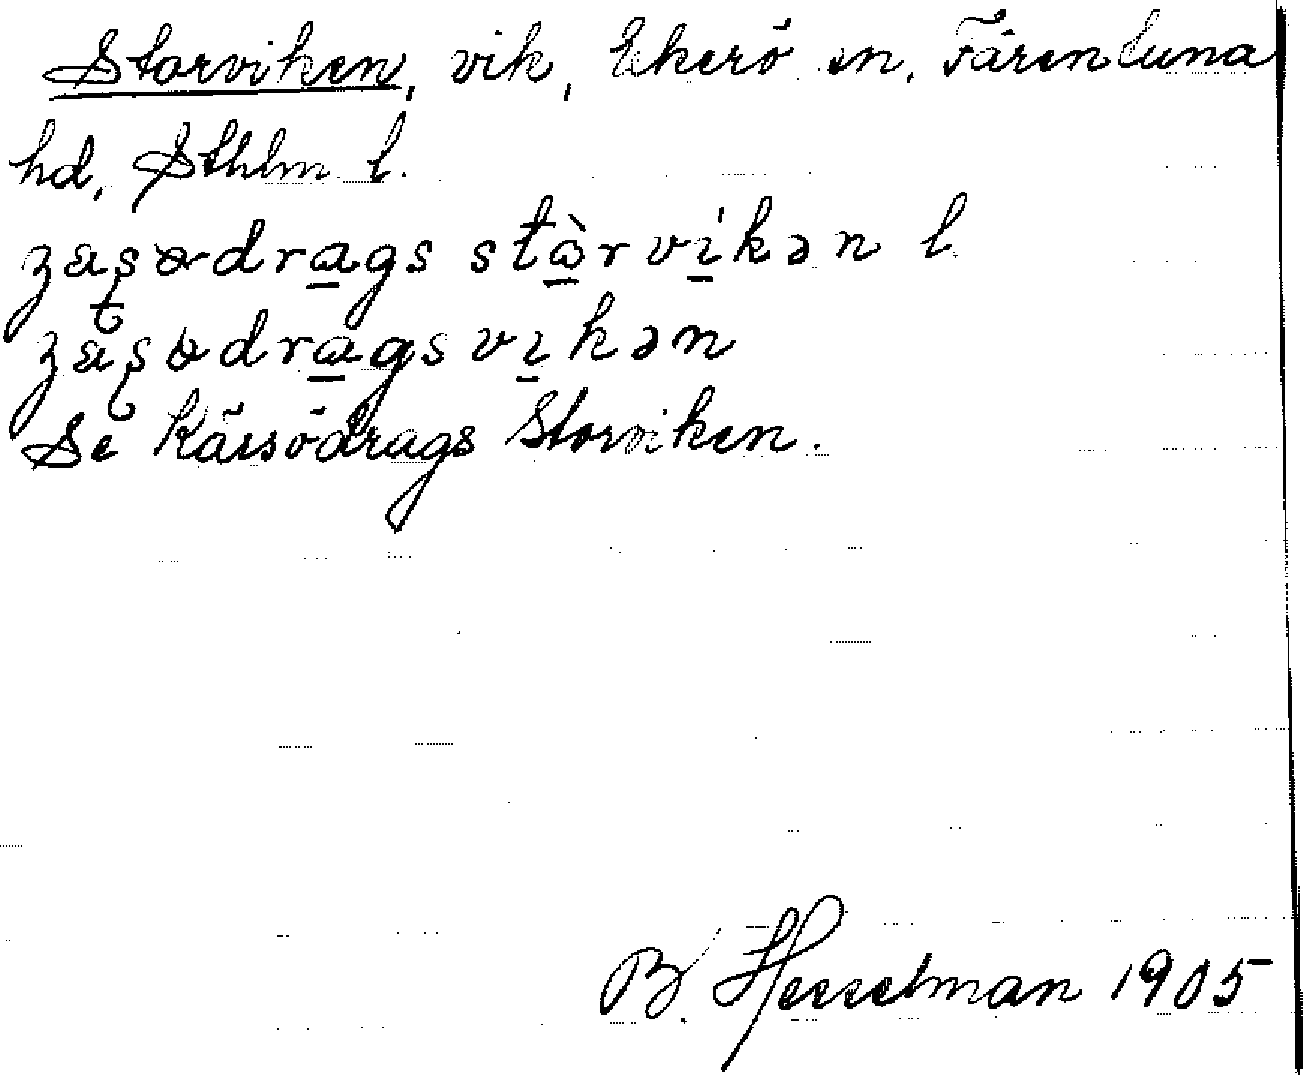 Storviken, vik, Ekerö sn, Färentuna
hd, Sthlm l.
ʒæʂødrags stὼrvikən l.
ʒæʂødragsvikən
Se Kärsödrags Storviken.
B. Hesselman 1905